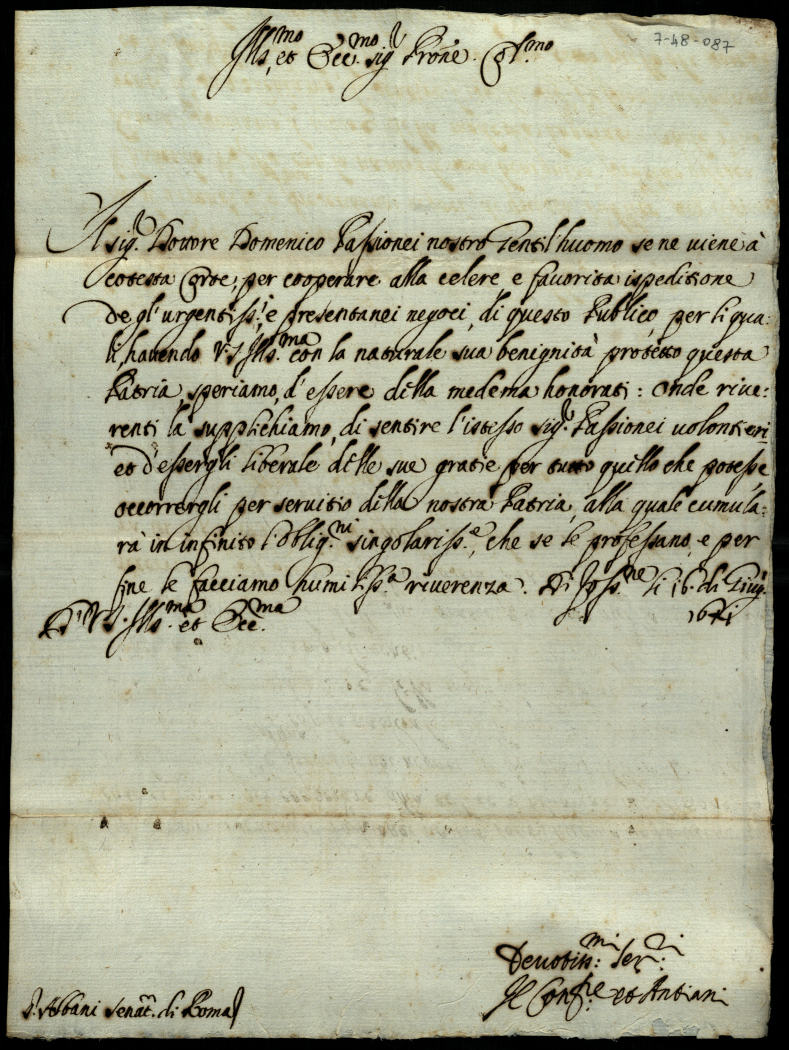 7-48-087
Ill.mo et Ecc.mo Sig.r Prone. Col.mo
Il Sig.r Dottore Domenico Passionei nostro Gentil'huomo se ne viene à
cotesta Corte, per cooperare alla celere e favorita ispeditione
degl'urgentiss.i e presentanei negoci, di questo Publico, per li qua:
li, havendo V.S. Ill.ma con la naturale sua benignità protetto questa
Patria, speriamo, d'essere della medema honorati: Onde rive:
renti la supplichiamo, di sentire l'istesso Sig.r Passionei volontieri
et d'essergli liberale delle sue gratie per tutto quello che potesse
occorrergli per servitio della nostra Patria, alla quale cumula:
rà in infinito l'oblig.ni singolariss.e, che se le professano, e per
fine le facciamo humiliss.a riverenza. Di Foss.ne li 16. di Giug.
D. V.S. Ill.ma et Ecc.ma 1641
Devotiss.mi Ser.ri
Il Conf.re et Antiani
S. Albani Senat.r di Roma